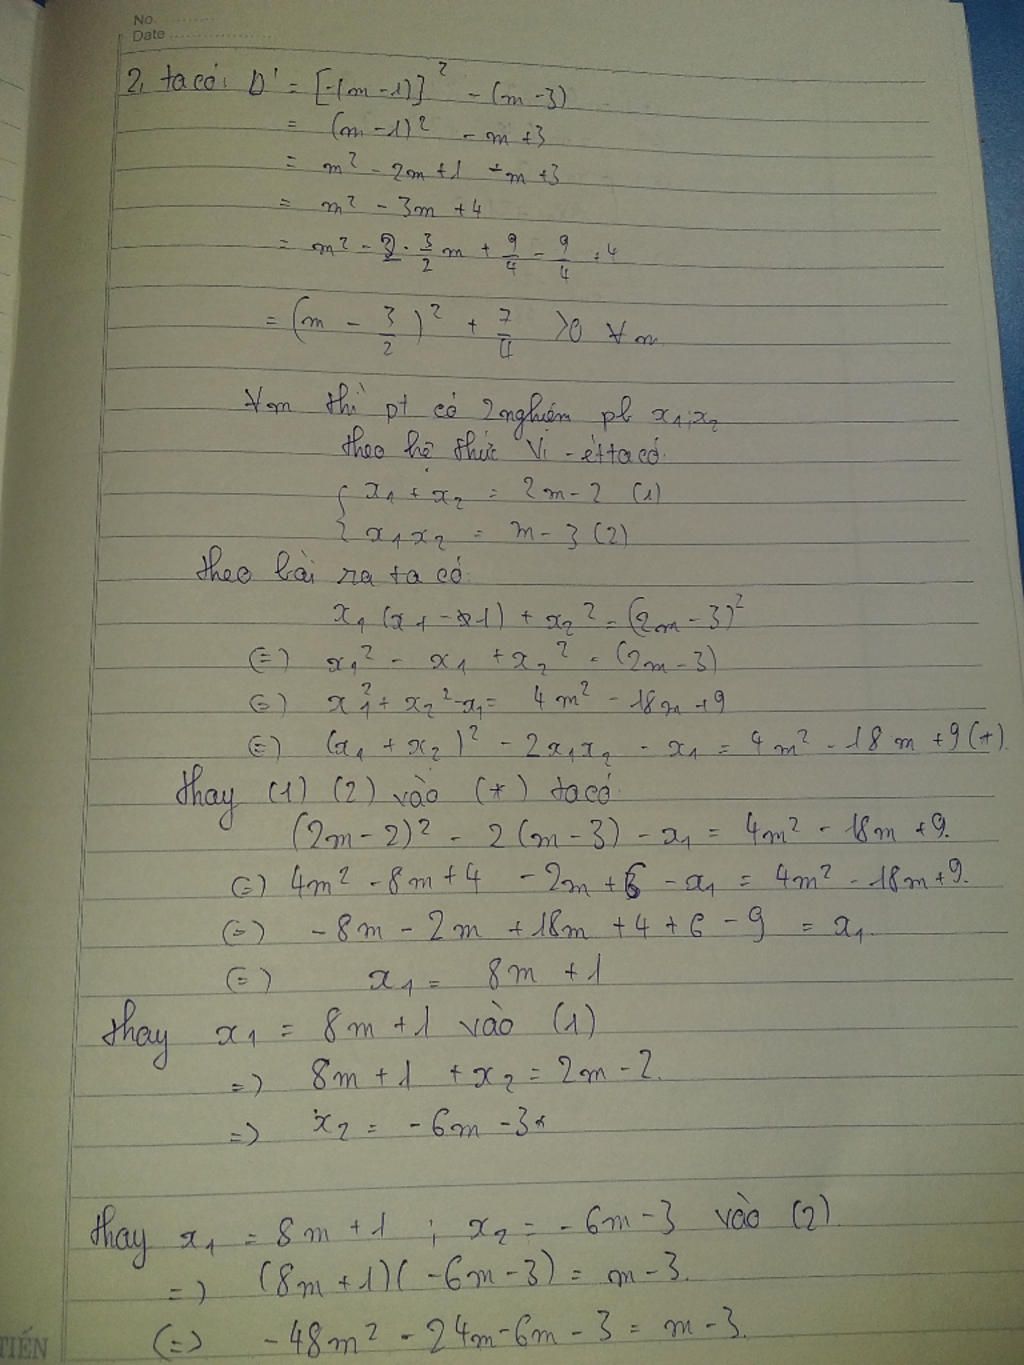 No. ............
Date ....................
2, ta có: Δ' = [-(m-1)]² - (m-3)
= (m-1)² - m+3
= m² - 2m+1 -m+3
= m² - 3m + 4
= m² - 2 . 3/2 m + 9/4 - 9/4 + 4
= (m - 3/2)² + 7/4 >0 ∀m
∀m thì pt có 2 nghiệm pb x₁;x₂
theo hệ thức Vi-ét ta có
{ x₁ + x₂ = 2m-2 (1)
{ x₁x₂ = m-3 (2)
theo bài ra ta có
x₁(x₁-1) + x₂² = (2m-3)²
(=) x₁² - x₁ + x₂² = (2m-3)
(=) x₁² + x₂² -x₁ = 4m² - 18m +9
(=) (x₁ + x₂)² - 2x₁x₂ - x₁ = 4m² - 18m +9 (*)
thay (1) (2) vào (*) ta có
(2m-2)² - 2(m-3) -x₁ = 4m² - 18m +9.
(=) 4m² -8m+4 -2m+6 -x₁ = 4m² -18m+9.
(=) -8m - 2m +18m +4+6 -9 = x₁.
(=) x₁ = 8m +1
thay x₁ = 8m+1 vào (1)
=> 8m+1 +x₂ = 2m-2.
=> x₂ = -6m -3
thay x₁ = 8m+1 ; x₂ = -6m-3 vào (2)
=> (8m+1)(-6m-3) = m-3.
(=) -48m² - 24m-6m - 3 = m-3.
TIẾN